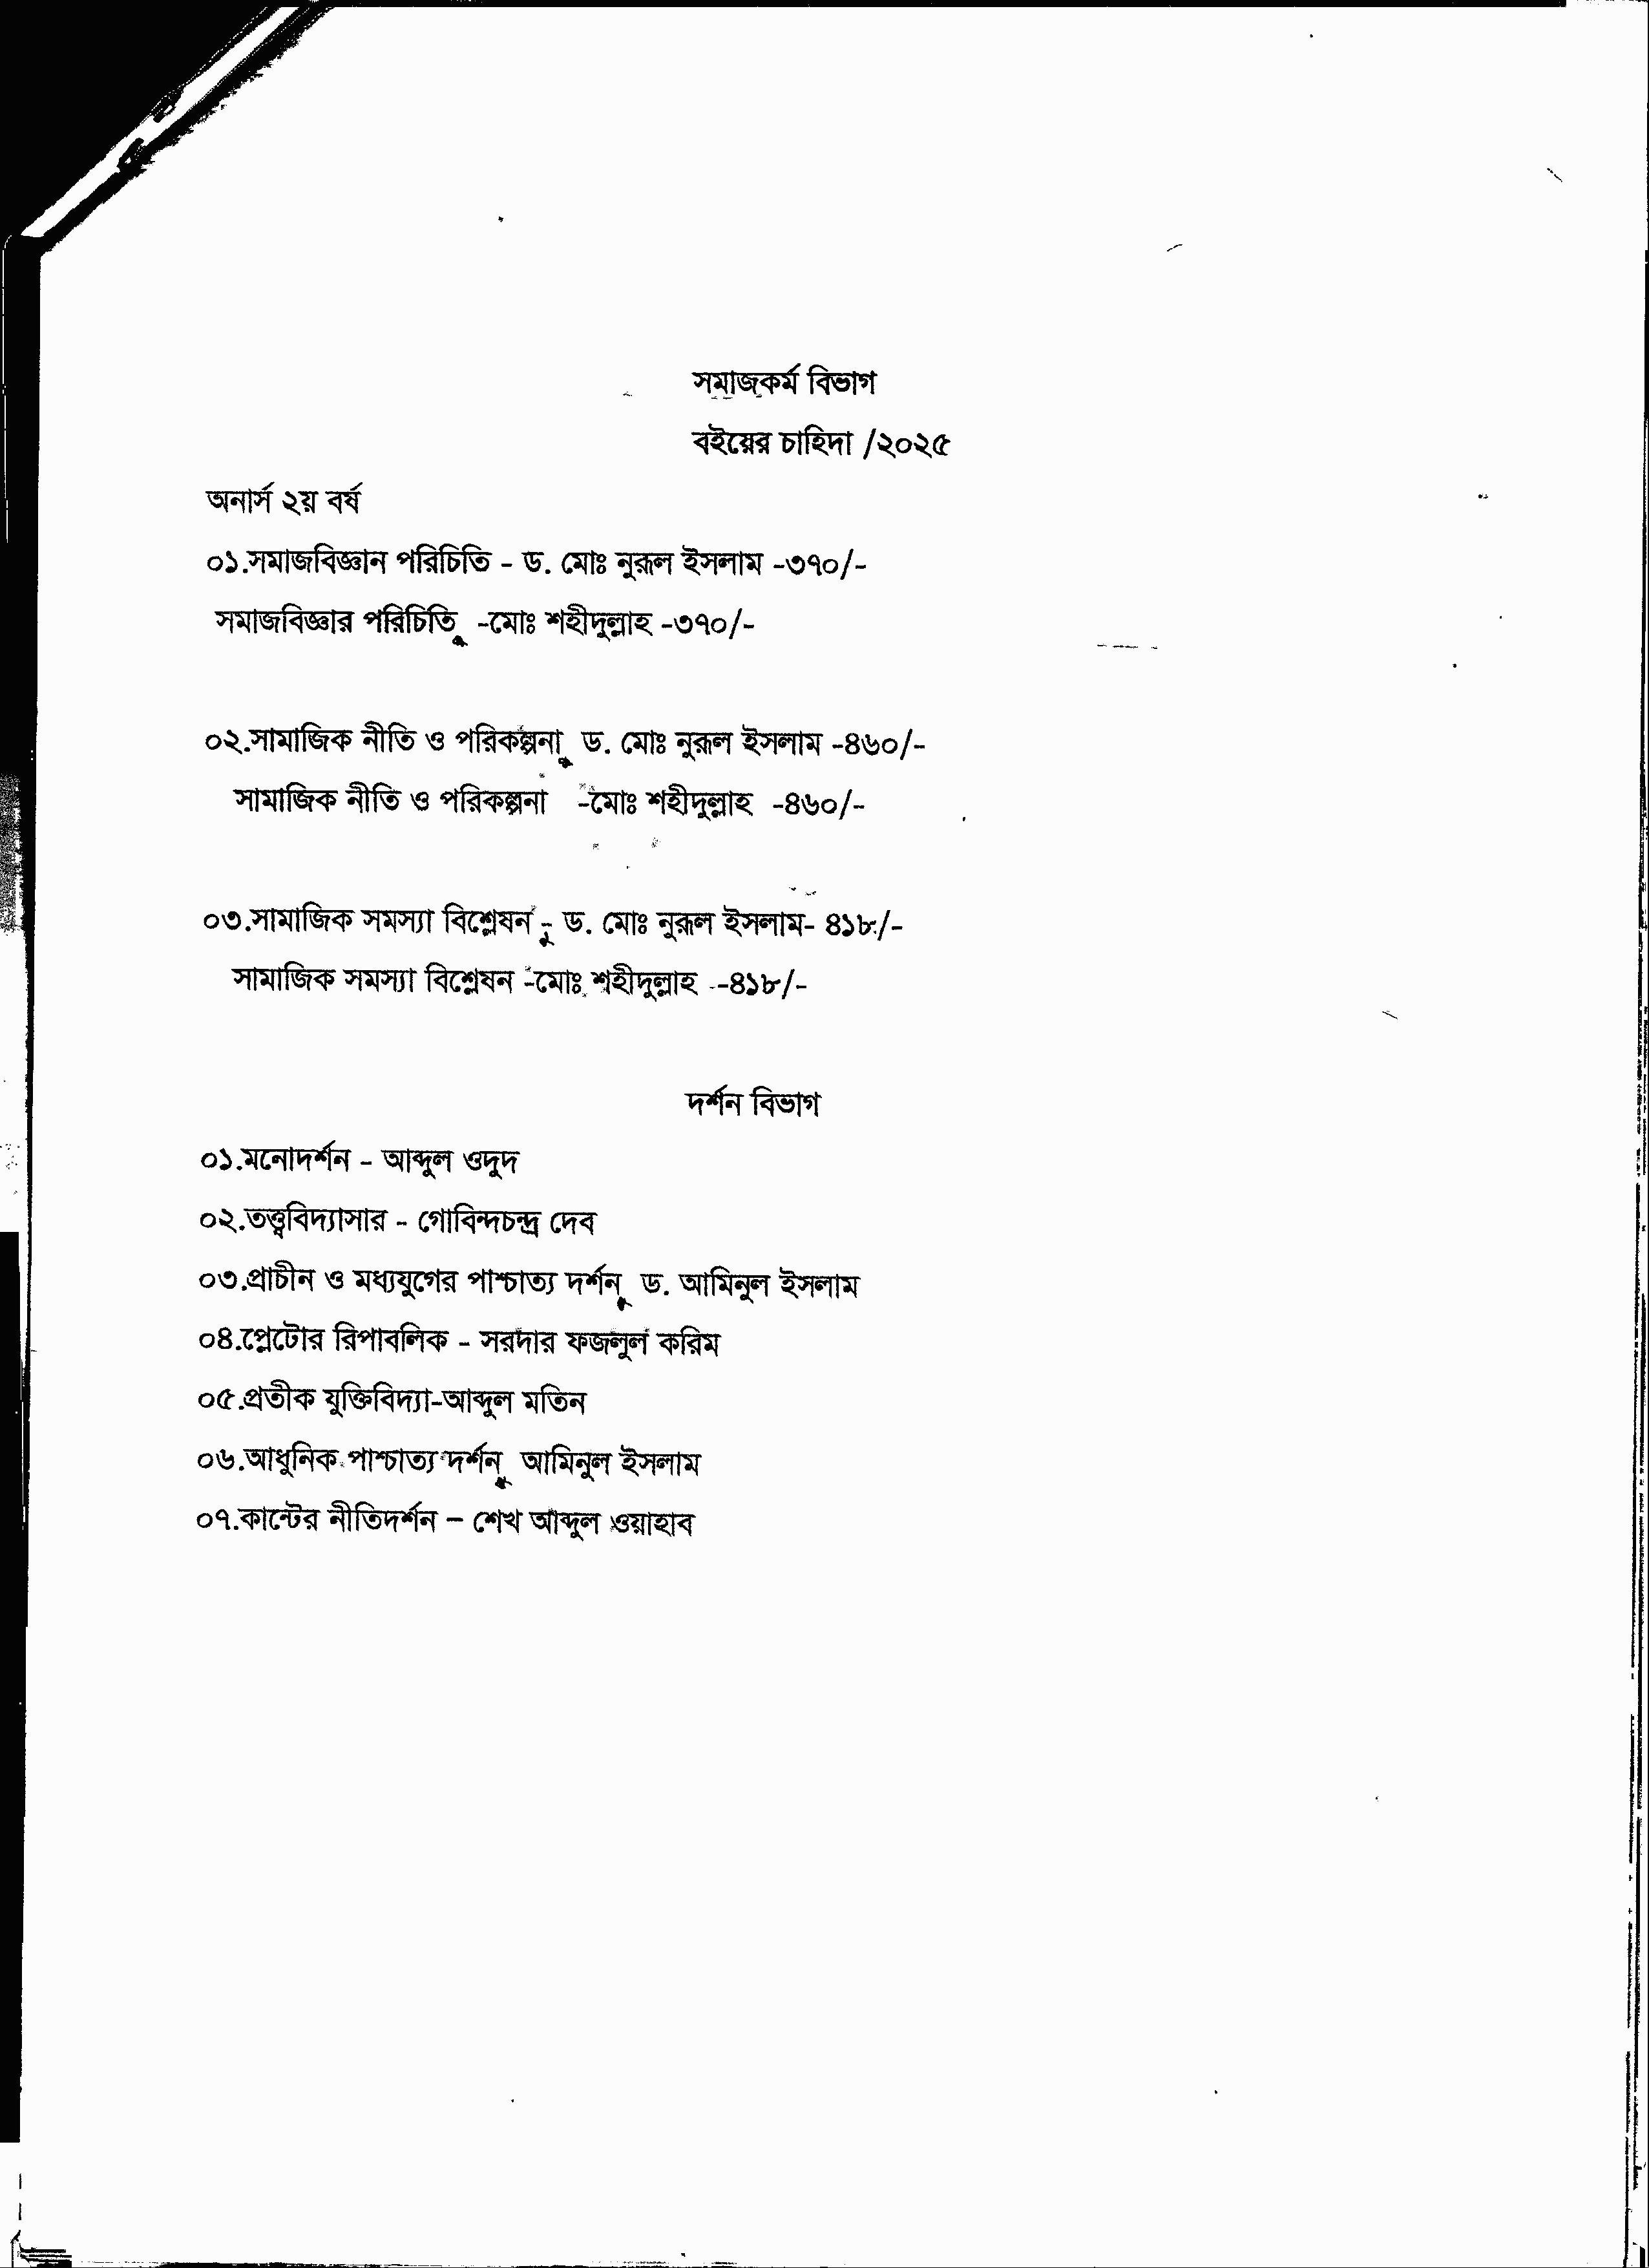 সমাজকর্ম বিভাগ
বইয়ের চাহিদা /২০২৫
অনার্স ২য় বর্ষ
০১.সমাজবিজ্ঞান পরিচিতি - ড. মোঃ নুরূল ইসলাম -৩৭০/-
সমাজবিজ্ঞার পরিচিতি -মোঃ শহীদুল্লাহ -৩৭০/-
০২.সামাজিক নীতি ও পরিকল্পনা ড. মোঃ নুরূল ইসলাম -৪৬০/-
সামাজিক নীতি ও পরিকল্পনা -মোঃ শহীদুল্লাহ -৪৬০/-
০৩.সামাজিক সমস্যা বিশ্লেষন - ড. মোঃ নুরূল ইসলাম- ৪১৮/-
সামাজিক সমস্যা বিশ্লেষন -মোঃ শহীদুল্লাহ -৪১৮/-
দর্শন বিভাগ
০১.মনোদর্শন - আব্দুল ওদুদ
০২.তত্ত্ববিদ্যাসার - গোবিন্দচন্দ্র দেব
০৩.প্রাচীন ও মধ্যযুগের পাশ্চাত্য দর্শন ড. আমিনুল ইসলাম
০৪.প্লেটোর রিপাবলিক - সরদার ফজলুল করিম
০৫.প্রতীক যুক্তিবিদ্যা-আব্দুল মতিন
০৬.আধুনিক পাশ্চাত্য দর্শন আমিনুল ইসলাম
০৭.কান্টের নীতিদর্শন – শেখ আব্দুল ওয়াহাব